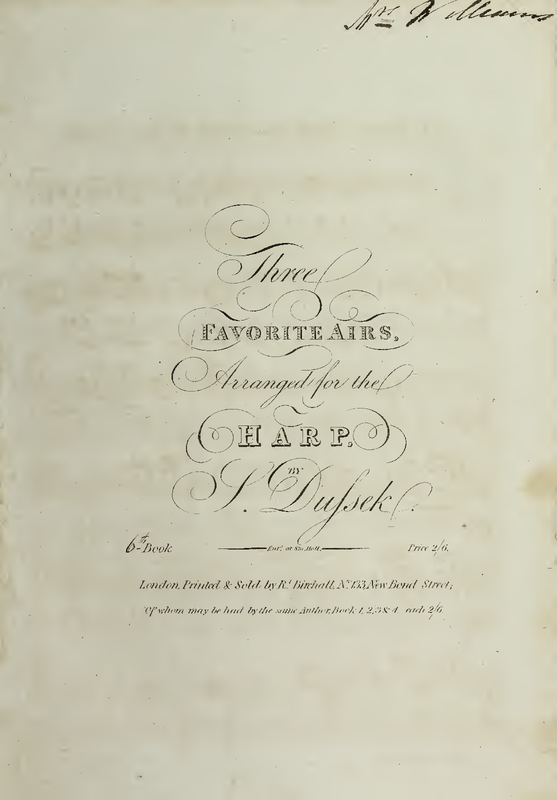 Mrs Williams
Three
FAVORITE AIRS,
Arranged for the
HARP,
BY
S. Dufsek
6th Book Ent.d at Sta. Hall. Price 2/6.
London, Printed & Sold by R.t Birchall, No. 133, New Bond Street;
Of whom may be had by the same Author, Book 1, 2, 3 & 4 each 2/6